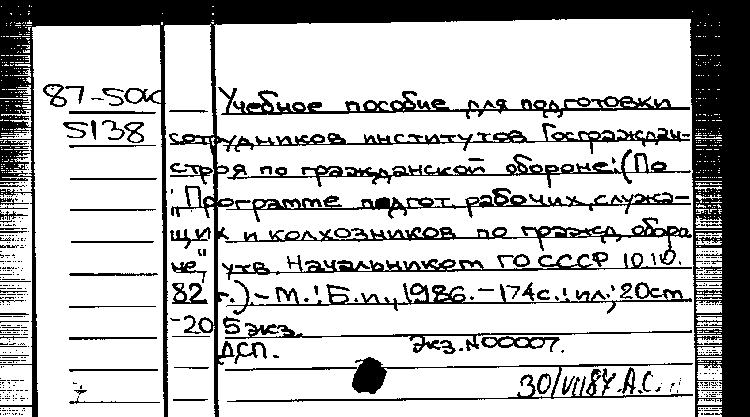 87-50к Учебное пособие для подготовки
5138 сотрудников институтов Госграждан-
строя по гражданской обороне: (По
"Программе подгот. рабочих, служа-
щих и колхозников по гражд. оборо
не", утв. Начальником ГО СССР 10.10.
82 г.).-М.: Б.и., 1986.-174с.: ил.; 20см
-205 экз.
ДСП. Экз. N00007.
30/VII87 А.С.